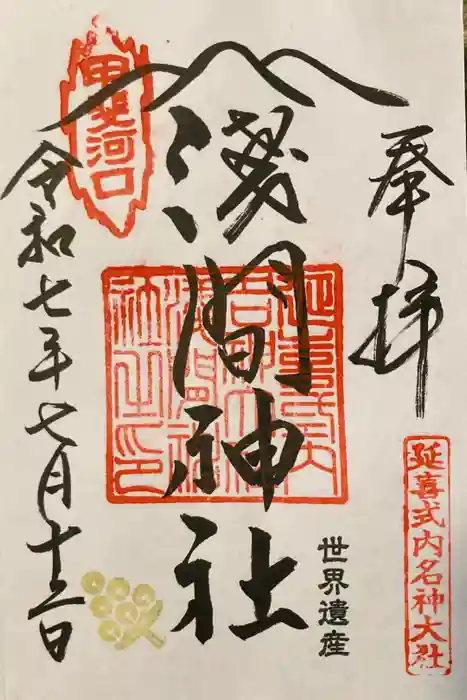 奉拝
延喜式内名神大社
淺間神社
世界遺産
甲斐河口
令和七年七月十二日